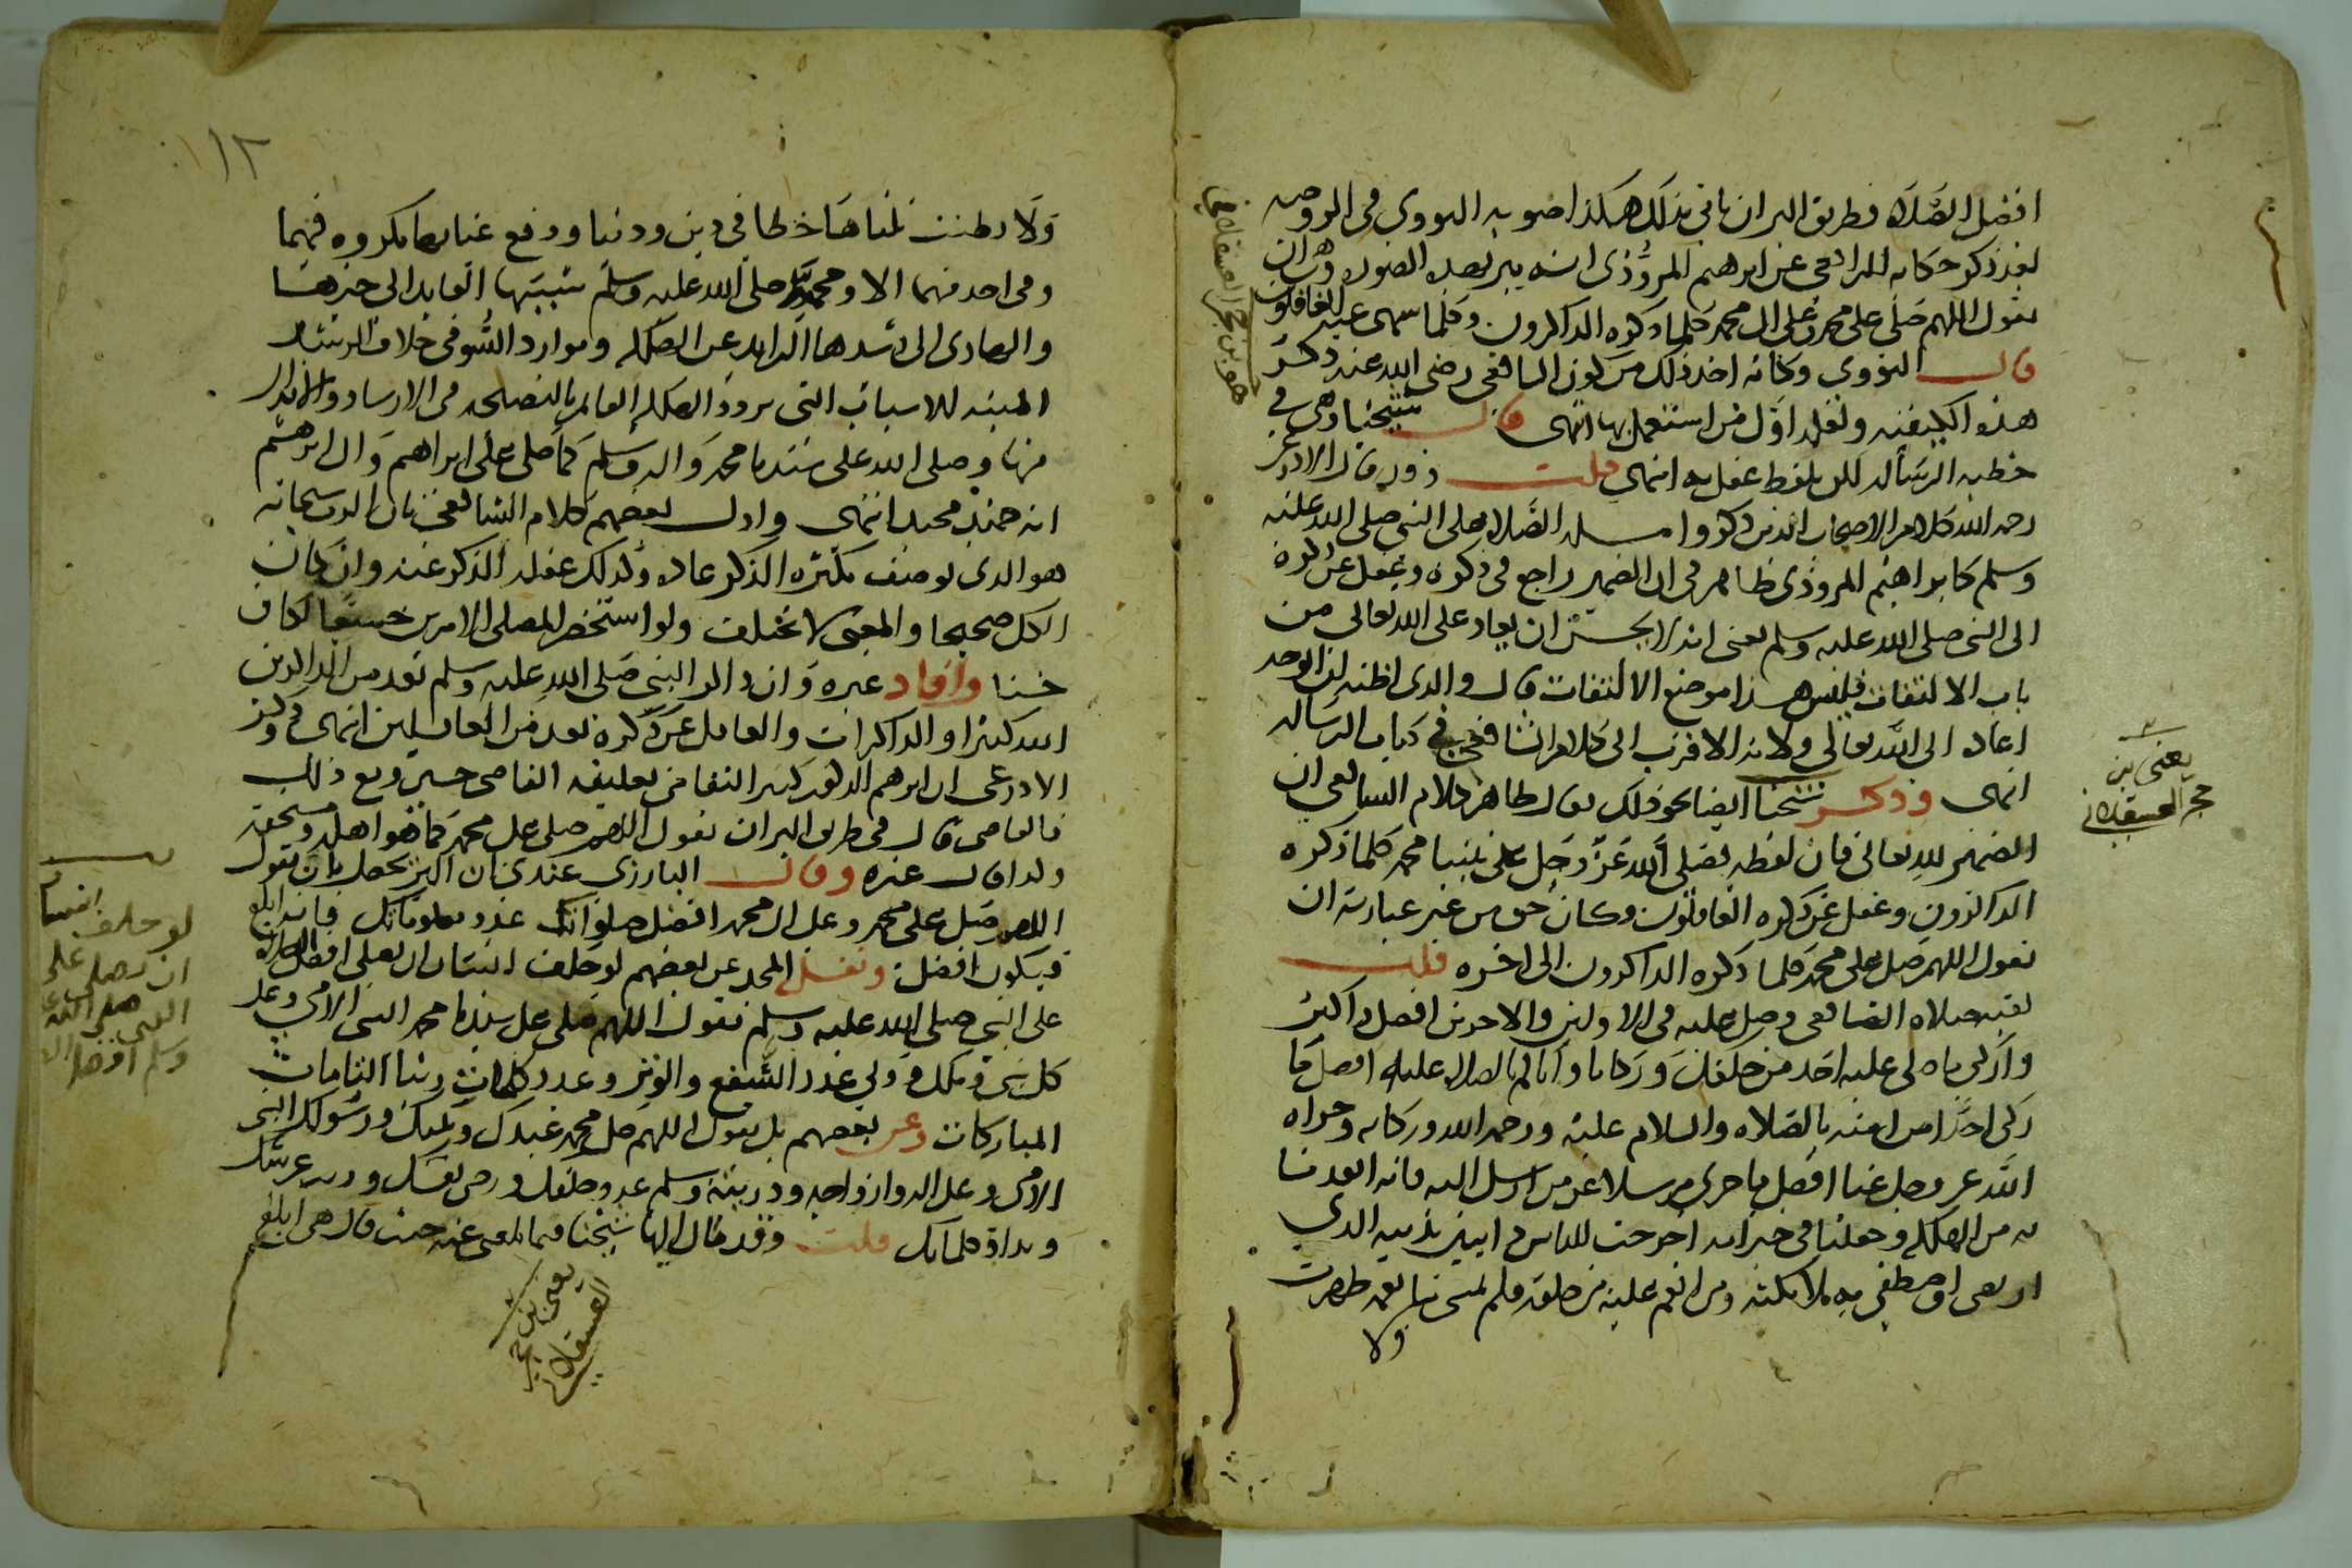 افضل الصلاة فطريق البر ان ياتي بذلك هكذا صوبه النووي في الروضه
بعد ذكر حكاية الرافعي عن ابرهيم المروذي انه يبر بهذه الصوره وهي ان
يقول اللهم صلي على محمد وعلى ال محمد كلما ذكره الذاكرون وكلما سهى عنه الغافلون
قال النووي وكانه اخذ ذلك من كون الشافعي رضي الله عنه ذكر
هذه الكيفية ولعله اول من استعملها انتهى قال شيخنا وهي في
خطبه الرساله لكن بلفظ غفل بدل سهى قلت وقد قال الاذرعي
رحمه الله كلام الاصحاب الذين ذكروا مسله الصلاه على النبي صلى الله عليه
وسلم كابراهيم المروذي ظاهر في ان الضمير راجع في ذكره وغفل عن ذكره
الى النبي صلى الله عليه وسلم يعني انه لا يحسن ان يعاد على الله تعالى من
باب الالتفات فليس هذا موضع الالتفات قال والذي اظنه ان الوجه
اعاده الى الله تعالى ولانه الاقرب الى كلام الشافعي في كتاب الرساله
انتهى وذكر شيخنا ايضا نحو ذلك بقال ظاهر كلام الشافعي ان
الضمير لله تعالى فان لفظه فصلى الله عز وجل على نبينا محمد كلما ذكره
الذاكرون وغفل عن ذكره الغافلون وكان حق من غير عبارته ان
يقول اللهم صل على محمد كلما ذكره الذاكرون الى اخره قلت
بقيه صلاه الشافعي وصلى عليه في الاولين والاخرين افضل واكثر
وازكى ما صلى على احد من خلقه وزكانا واياكم بالصلاه عليه افضل ما
زكى احدا من امته بالصلاه والسلام عليه ورحمه الله وبركاته وجزاه
الله عز وجل عنا افضل ما جزى مرسلا عن من ارسل اليه فانه انقذنا
به من الهلكه وجعلنا في خير امه اخرجت للناس داينين بدينه الذي
ارتضى واصطفى به ملائكته ومن انعم عليه من خلقه فلم تمس بنا نعمه ظهرت
ولا
هو بن حجر العسقلاني
يعني بن
حجر العسقلاني
١١٢
ولا بطنت نلنا بها حظا في دين ودنيا ودفع عنا بها مكروه فيهما
وفي احد منهما الا ومحمد صلى الله عليه وسلم سببها القايد الى خيرها
والهادي الى رشدها الذايد عن الهلكه وموارد السوء في خلاف الرشد
المنبه للاسباب التي تورد الهلكه القايم بالنصيحه في الارشاد والانذار
منها وصلى الله على سيدنا محمد واله وسلم كما صلى على ابراهيم وال ابرهيم
انه حميد مجيد انتهى واول بعضهم كلام الشافعي بان الله سبحانه
هو الذي يوصف بكثره الذكر عاده وكذلك غفله الذكر عنه وان كان
الكل صحيحا والمعنى لا يختلف ولو استحضر المصلي الامرين جميعا لكان
حسنا وافاد غيره وان ذاكر النبي صلى الله عليه وسلم يعد من الذاكرين
الله كثيرا والذاكرات والغافل عن ذكره يعد من الغافلين انتهى وذكر
الاذرعي ان ابرهيم المذكور كثير النقل من تعليقه القاضي حسين ومع ذلك
فالقاضي قال في طريق البر ان يقول اللهم صلي على محمد كما هو اهله ومستحقه
وكذا قال غيره وقال البارزي عندي ان البر يحصل بان يقول
اللهم صل على محمد وعلى ال محمد افضل صلواتك عدد معلوماتك فانه ابلغ
فيكون افضل ونقل المجد عن بعضهم لو حلف انسان ان يصلي افضل الصلاه
على النبي صلى الله عليه وسلم يقول اللهم صلي على سيدنا محمد النبي الامي وعلى
كل نبي وملك وولي عدد الشفع والوتر وعدد كلمات ربنا التامات
المباركات وعن بعضهم بل يقول اللهم صل على محمد عبدك ونبيك ورسولك النبي
الامي وعلى اله وازواجه وذريته وسلم عدد خلقك ورضى نفسك وزنه عرشك
ومداد كلماتك قلت وقد مال اليها شيخنا فيما بلغني عنه حيث قال هي ابلغ
يعني بن حجر
العسقلاني
لو حلف انسان
ان يصلي على
النبي صلى الله عليه
وسلم افضل